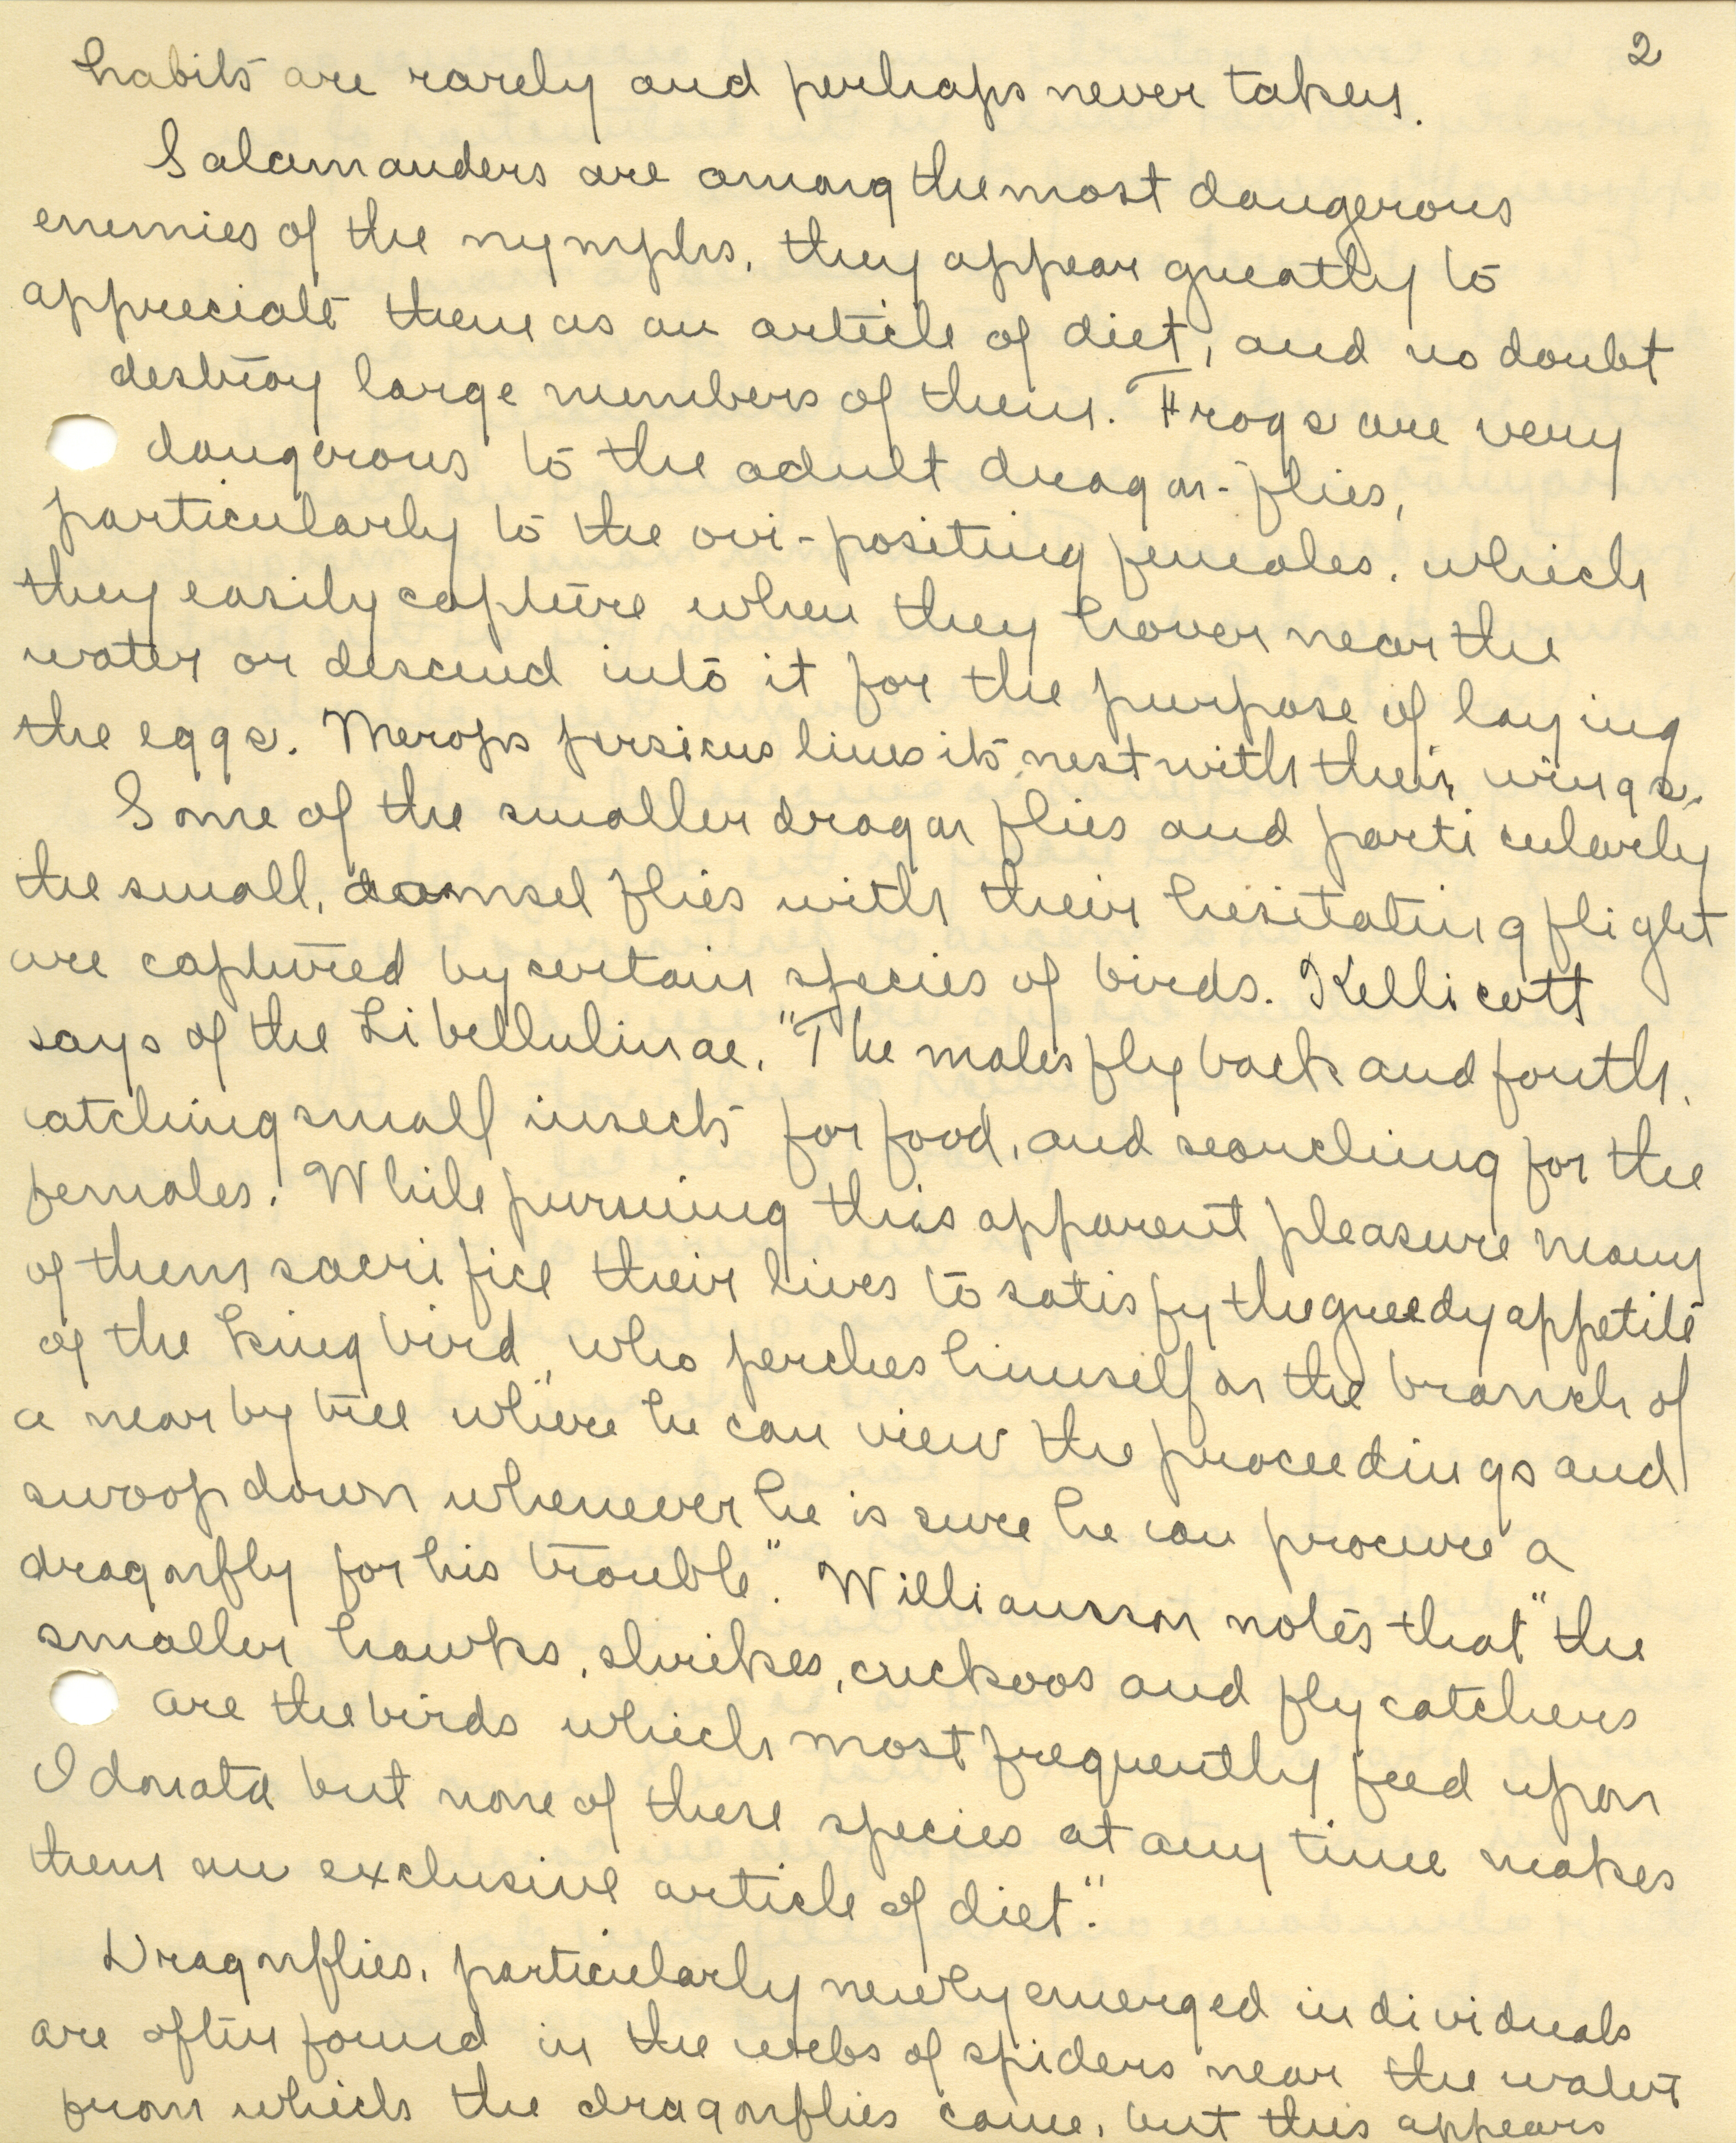 2
habits are rarely and perhaps never taken.
Salamanders are among the most dangerous
enemies of the nymphs, they appear greatly to
appreciate them as an article of diet, and no doubt
destroy large numbers of them. Frogs are very
dangerous to the adult dragon-flies,
particularly to the ovi-positing females, which
they easily capture when they hover near the
water or descend into it for the purpose of laying
the eggs. Merops persicus lines its nest with their wings.
Some of the smaller dragon flies and particularly
the small, damsel flies with their hesitating flight
are captured by certain species of birds. Kellicott
says of the Libellulinae, "The males fly back and fourth,
catching small insects for food, and searching for the
females. While pursuing this apparent pleasure many
of them sacrifice their lives to satisfy the greedy appetite
of the king bird, who perches himself on the branch of
a near by tree where he can view the proceedings and
swoop down whenever he is sure he can procure a
dragonfly for his trouble". Williamson notes that "the
smaller hawks, shrikes, cuckoos and fly catchers
are the birds which most frequently feed upon
Odonata but none of these species at any time makes
them an exclusive article of diet".
Dragonflies, particularly newly emerged individuals
are often found in the webs of spiders near the water
from which the dragonflies come, but this appears